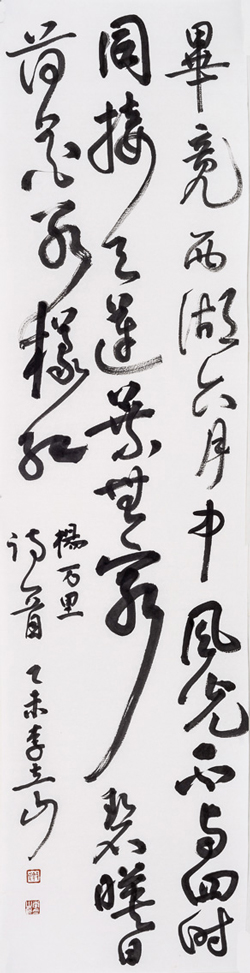 畢竟西湖六月中風光不与四时
同接天蓮葉無窮碧暎日
荷花别樣红
楊万里
诗一首乙未李立山